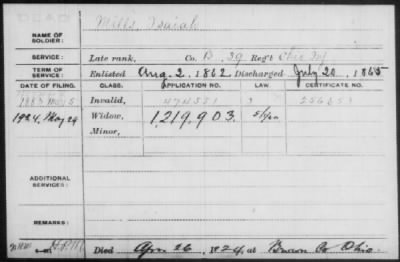 DEAD
Wills Isaiah
NAME OF SOLDIER:
SERVICE: Late rank, Co. B, 39 Reg't Ohio Inf
TERM OF SERVICE: Enlisted Aug. 2, 1862 Discharged July 20, 1865
DATE OF FILING. CLASS. APPLICATION NO. LAW CERTIFICATE NO.
1883 May 5 Invalid, 474551
1924, May 29 Widow, 1,219,903.
Minor,
ADDITIONAL SERVICES:
REMARKS:
Died Apr. 26, 1924, at Brown Co Ohio.